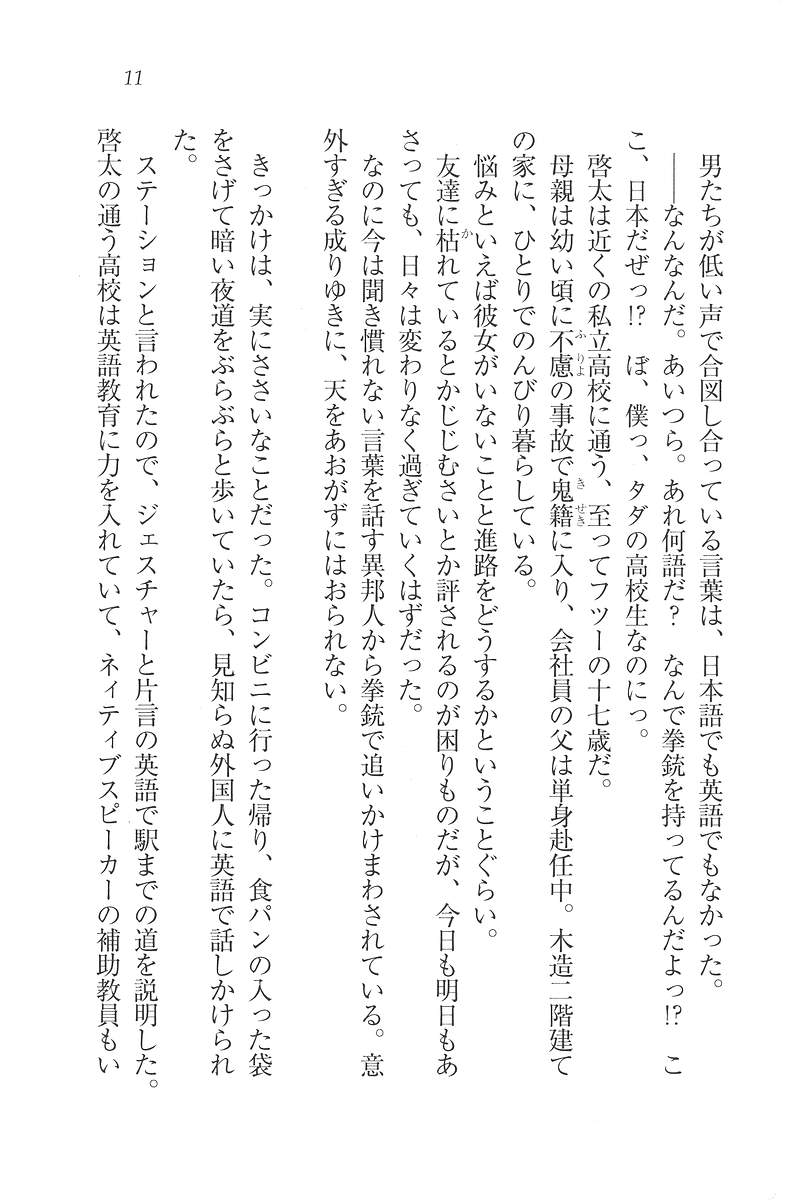 11
男たちが低い声で合図し合っている言葉は、日本語でも英語でもなかった。
――なんなんだ。あいつら。あれ何語だ？　なんで拳銃を持ってるんだよっ!?　こ
こ、日本だぜっ!?　ぼ、僕っ、タダの高校生なのにっ。
啓太は近くの私立高校に通う、至ってフツーの十七歳だ。
母親は幼い頃に不慮の事故で鬼籍に入り、会社員の父は単身赴任中。木造二階建て
の家に、ひとりでのんびり暮らしている。
悩みといえば彼女がいないことと進路をどうするかということぐらい。
友達に枯れているとかじじむさいとか評されるのが困りものだが、今日も明日もあ
さっても、日々は変わりなく過ぎていくはずだった。
なのに今は聞き慣れない言葉を話す異邦人から拳銃で追いかけまわされている。意
外すぎる成りゆきに、天をあおがずにはおられない。
きっかけは、実にささいなことだった。コンビニに行った帰り、食パンの入った袋
をさげて暗い夜道をぶらぶらと歩いていたら、見知らぬ外国人に英語で話しかけられ
た。
ステーションと言われたので、ジェスチャーと片言の英語で駅までの道を説明した。
啓太の通う高校は英語教育に力を入れていて、ネィティブスピーカーの補助教員もい